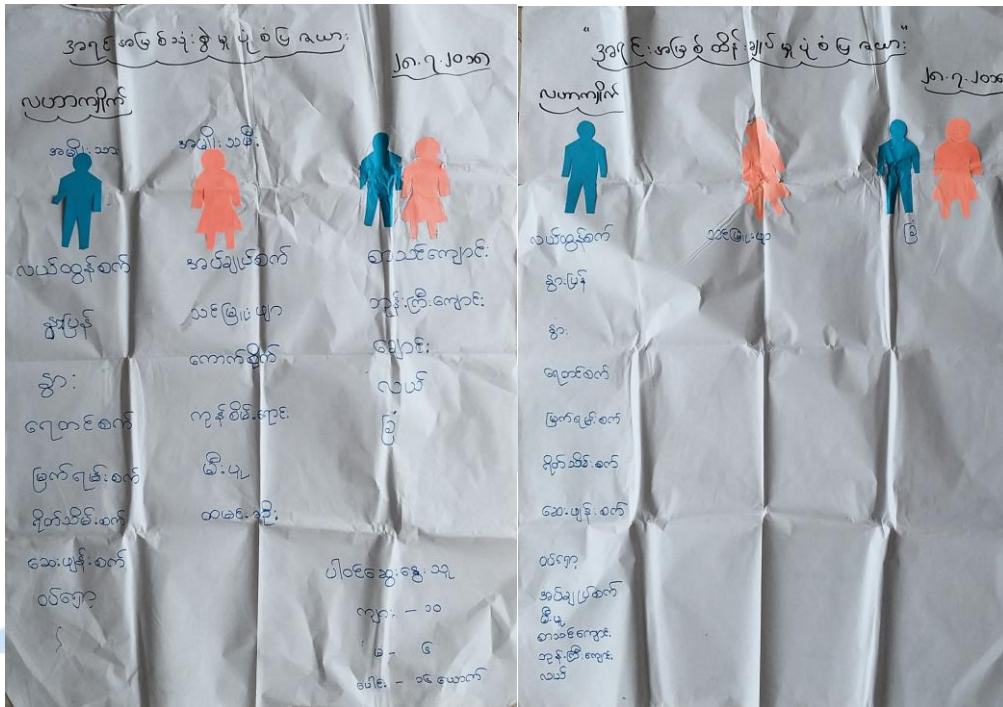 အရင်းအမြစ်သုံးစွဲမှုပုံစံပြဇယား
၂၈.၇.၂၀၁၈
လဟာကျိုက်
အမျိုးသား
အမျိုးသမီး
လယ်ထွန်စက်
နွားပြန်
နွား
ရေတင်စက်
မြက်ရမ်းစက်
ရိတ်သိမ်းစက်
ဆေးဖျန်းစက်
ဝပ်ရှော့
အပ်ချုပ်စက်
သင်ဖြူးဖျာ
ကောက်စိုက်
ကုန်စိမ်းရောင်း
မီးပူ
ထမင်းအိုး
စာသင်ကျောင်း
ဘုန်းကြီးကျောင်း
ချောင်း
လယ်
ခြံ
ပါဝင်ဆွေးနွေးသူ
ကျား - ၁၀
မ - ၆
ပေါင်း - ၁၆ ယောက်
"အရင်းအမြစ်ထိန်းချုပ်မှုပုံစံပြဇယား"
၂၈.၇.၂၀၁၈
လဟာကျိုက်
လယ်ထွန်စက်
နွားပြန်
နွား
ရေတင်စက်
မြက်ရမ်းစက်
ရိတ်သိမ်းစက်
ဆေးဖျန်းစက်
ဝပ်ရှော့
အပ်ချုပ်စက်
မီးပူ
စာသင်ကျောင်း
ဘုန်းကြီးကျောင်း
လယ်
သင်ဖြူးဖျာ
ခြံ